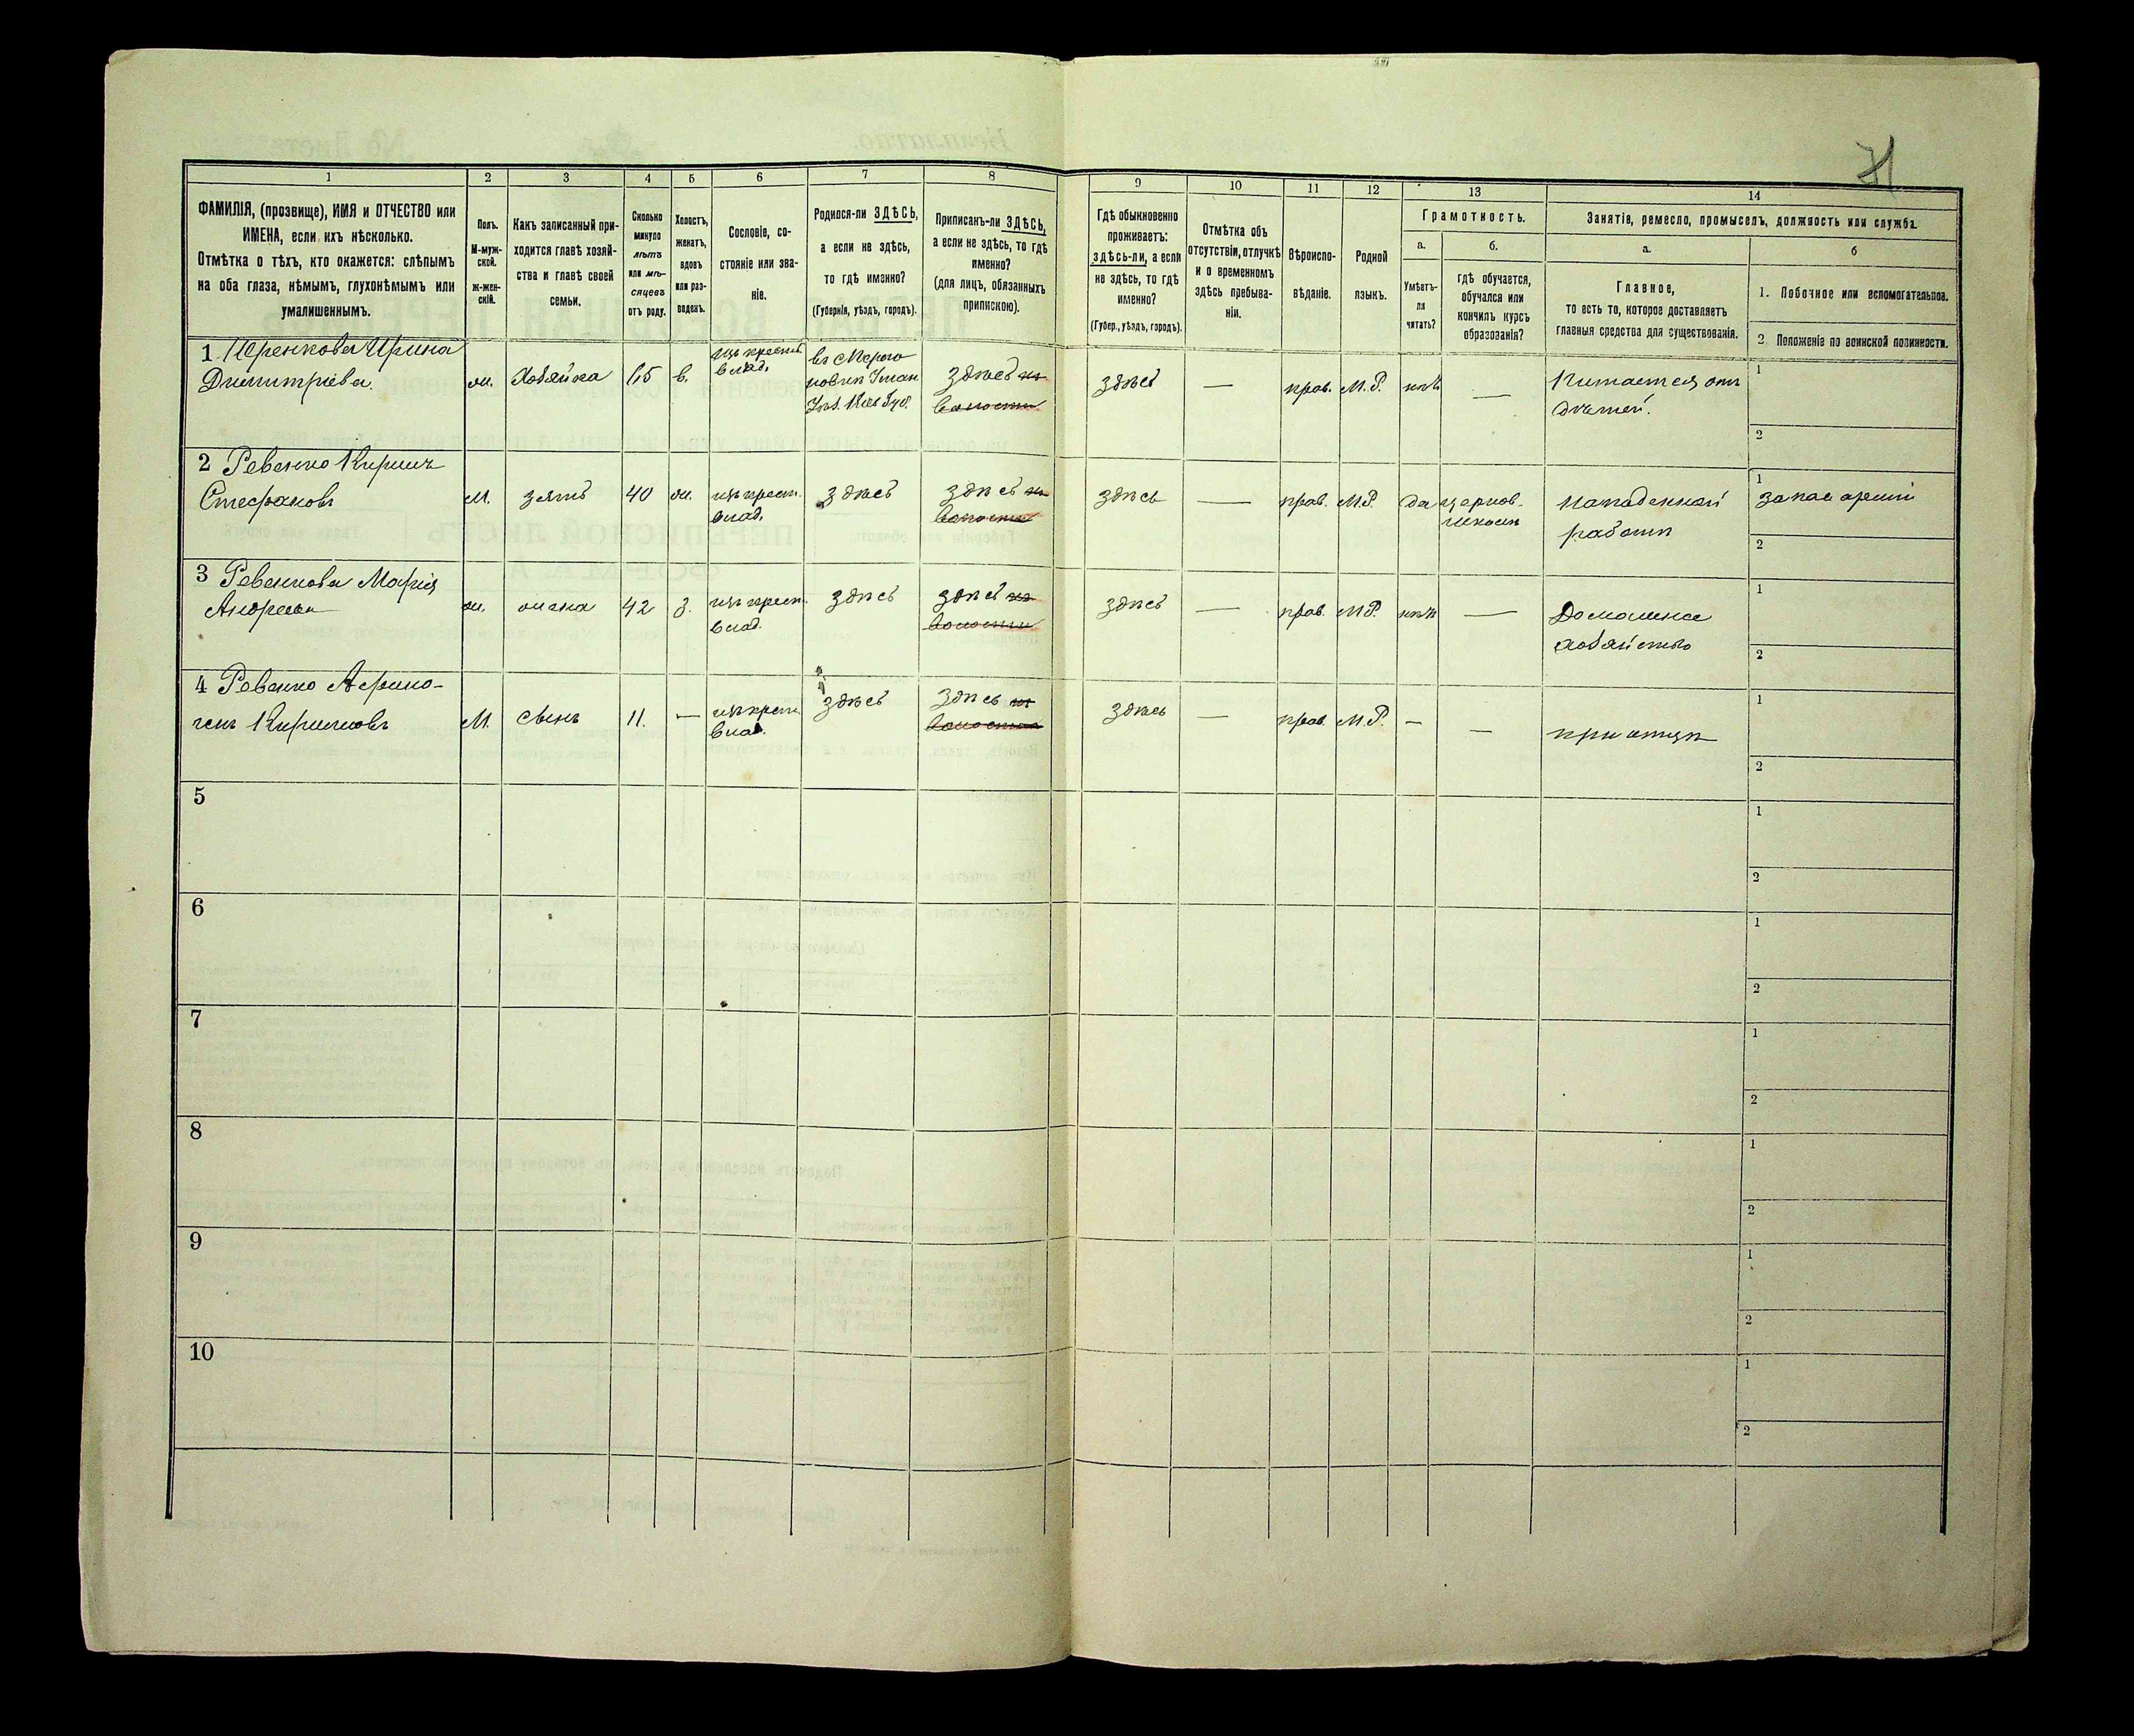 71
1 2 3 4 5 6 7 8 9 10 11 12 13 14
ФАМИЛІЯ, (прозвище), ИМЯ и ОТЧЕСТВО или
ИМЕНА, если ихъ нѣсколько.
Отмѣтка о тѣхъ, кто окажется: слѣпымъ
на оба глаза, нѣмымъ, глухонѣмымъ или
умалишеннымъ.
Полъ.
М-муж-
ской.
ж-жен-
скій.
Какъ записанный при-
ходится главѣ хозяй-
ства и главѣ своей
семьи.
Сколько
минуло
лѣтъ
или мѣ-
сяцевъ
отъ роду.
Холостъ,
женатъ,
вдовъ
или раз-
веденъ.
Сословіе, со-
стояніе или зва-
ніе.
Родился-ли ЗДѢСЬ,
а если не здѣсь,
то гдѣ именно?
(Губернія, уѣздъ, городъ).
Приписанъ-ли ЗДѢСЬ,
а если не здѣсь, то гдѣ
именно?
(для лицъ, обязанныхъ
припискою).
Гдѣ обыкновенно
проживаетъ:
здѣсь-ли, а если
не здѣсь, то гдѣ
именно?
(Губер., уѣздъ, городъ).
Отмѣтка объ
отсутствіи, отлучкѣ
и о временномъ
здѣсь пребыва-
ніи.
Вѣроиспо-
вѣданіе.
Родной
языкъ.
Грамотность.
а.
Умѣетъ-
ли
читать?
б.
гдѣ обучается,
обучался или
кончилъ курсъ
образованія?
Занятіе, ремесло, промыселъ, должность или служба.
а.
Главное,
то есть то, которое доставляетъ
главныя средства для существованія.
б
1. Побочное или вспомогательное.
2. Положеніе по воинской повинности.
1 Ирина
Димитріева. ж. Хозяйка 65 в. изъ крест.
влад. здѣсь здѣсь — прав. М.Р. нѣтъ — Питается отъ
дѣтей. 1
2
2 Ревенко
Стефановъ М. зять 40 ж. изъ крест.
влад. здѣсь здѣсь здѣсь — прав. М.Р. да церков.
школѣ
работѣ 1 запас армии
2
3 Ревенкова Марія
Андреева ж. жена 42 з. изъ крест.
влад. здѣсь здѣсь здѣсь — прав. М.Р. нѣтъ — Домашнее
хозяйство 1
2
4 Ревенко Афино-
генъ М. сынъ 11. — изъ крест.
влад. здѣсь здѣсь здѣсь — прав. М.Р. — — при отцѣ 1
2
5 1
2
6 1
2
7 1
2
8 1
2
9 1
2
10 1
2